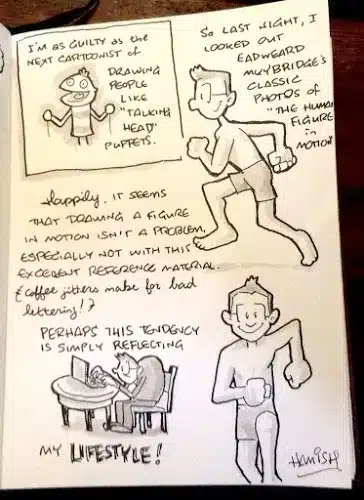 I'M AS GUILTY as the
NEXT CARTOONIST of
DRAWING
PEOPLE
LIKE
"TALKING
HEAD"
PUPPETS.
SO LAST NIGHT, I
LOOKED OUT
EADWEARD
MUYBRIDGE'S
CLASSIC
PHOTOS of
"THE HUMAN
FIGURE
in
MOTION"
Happily, IT SEEMS
THAT DRAWING A FIGURE
IN MOTION ISN'T A PROBLEM,
ESPECIALLY NOT WITH THIS
EXCELLENT REFERENCE MATERIAL.
{coffee jitters make for bad
lettering!}
PERHAPS THIS TENDENCY
IS SIMPLY REFLECTING
MY LIFESTYLE!
HAMISH